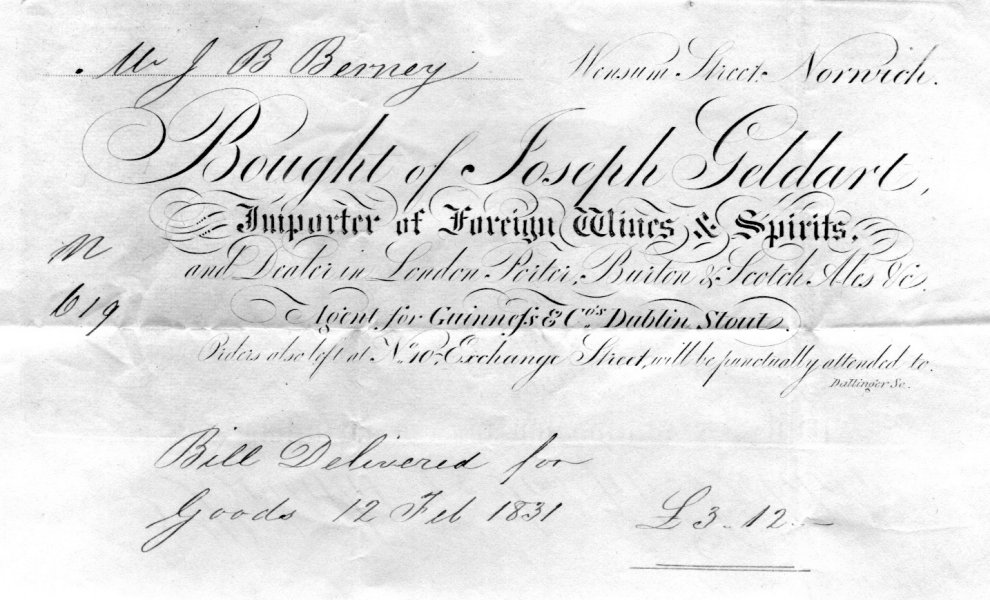 Mr J B Berney Wensum Street Norwich.
Bought of Joseph Geldart,
Importer of Foreign Wines & Spirits,
and Dealer in London Porter, Burton & Scotch Ales &c.
Agent for Guinneſs & Cos. Dublin Stout.
Orders also left at No. 10, Exchange Street, will be punctually attended to.
Dallinger Sc.
619
Bill Delivered for
Goods 12 Feb 1831 £3.12.-